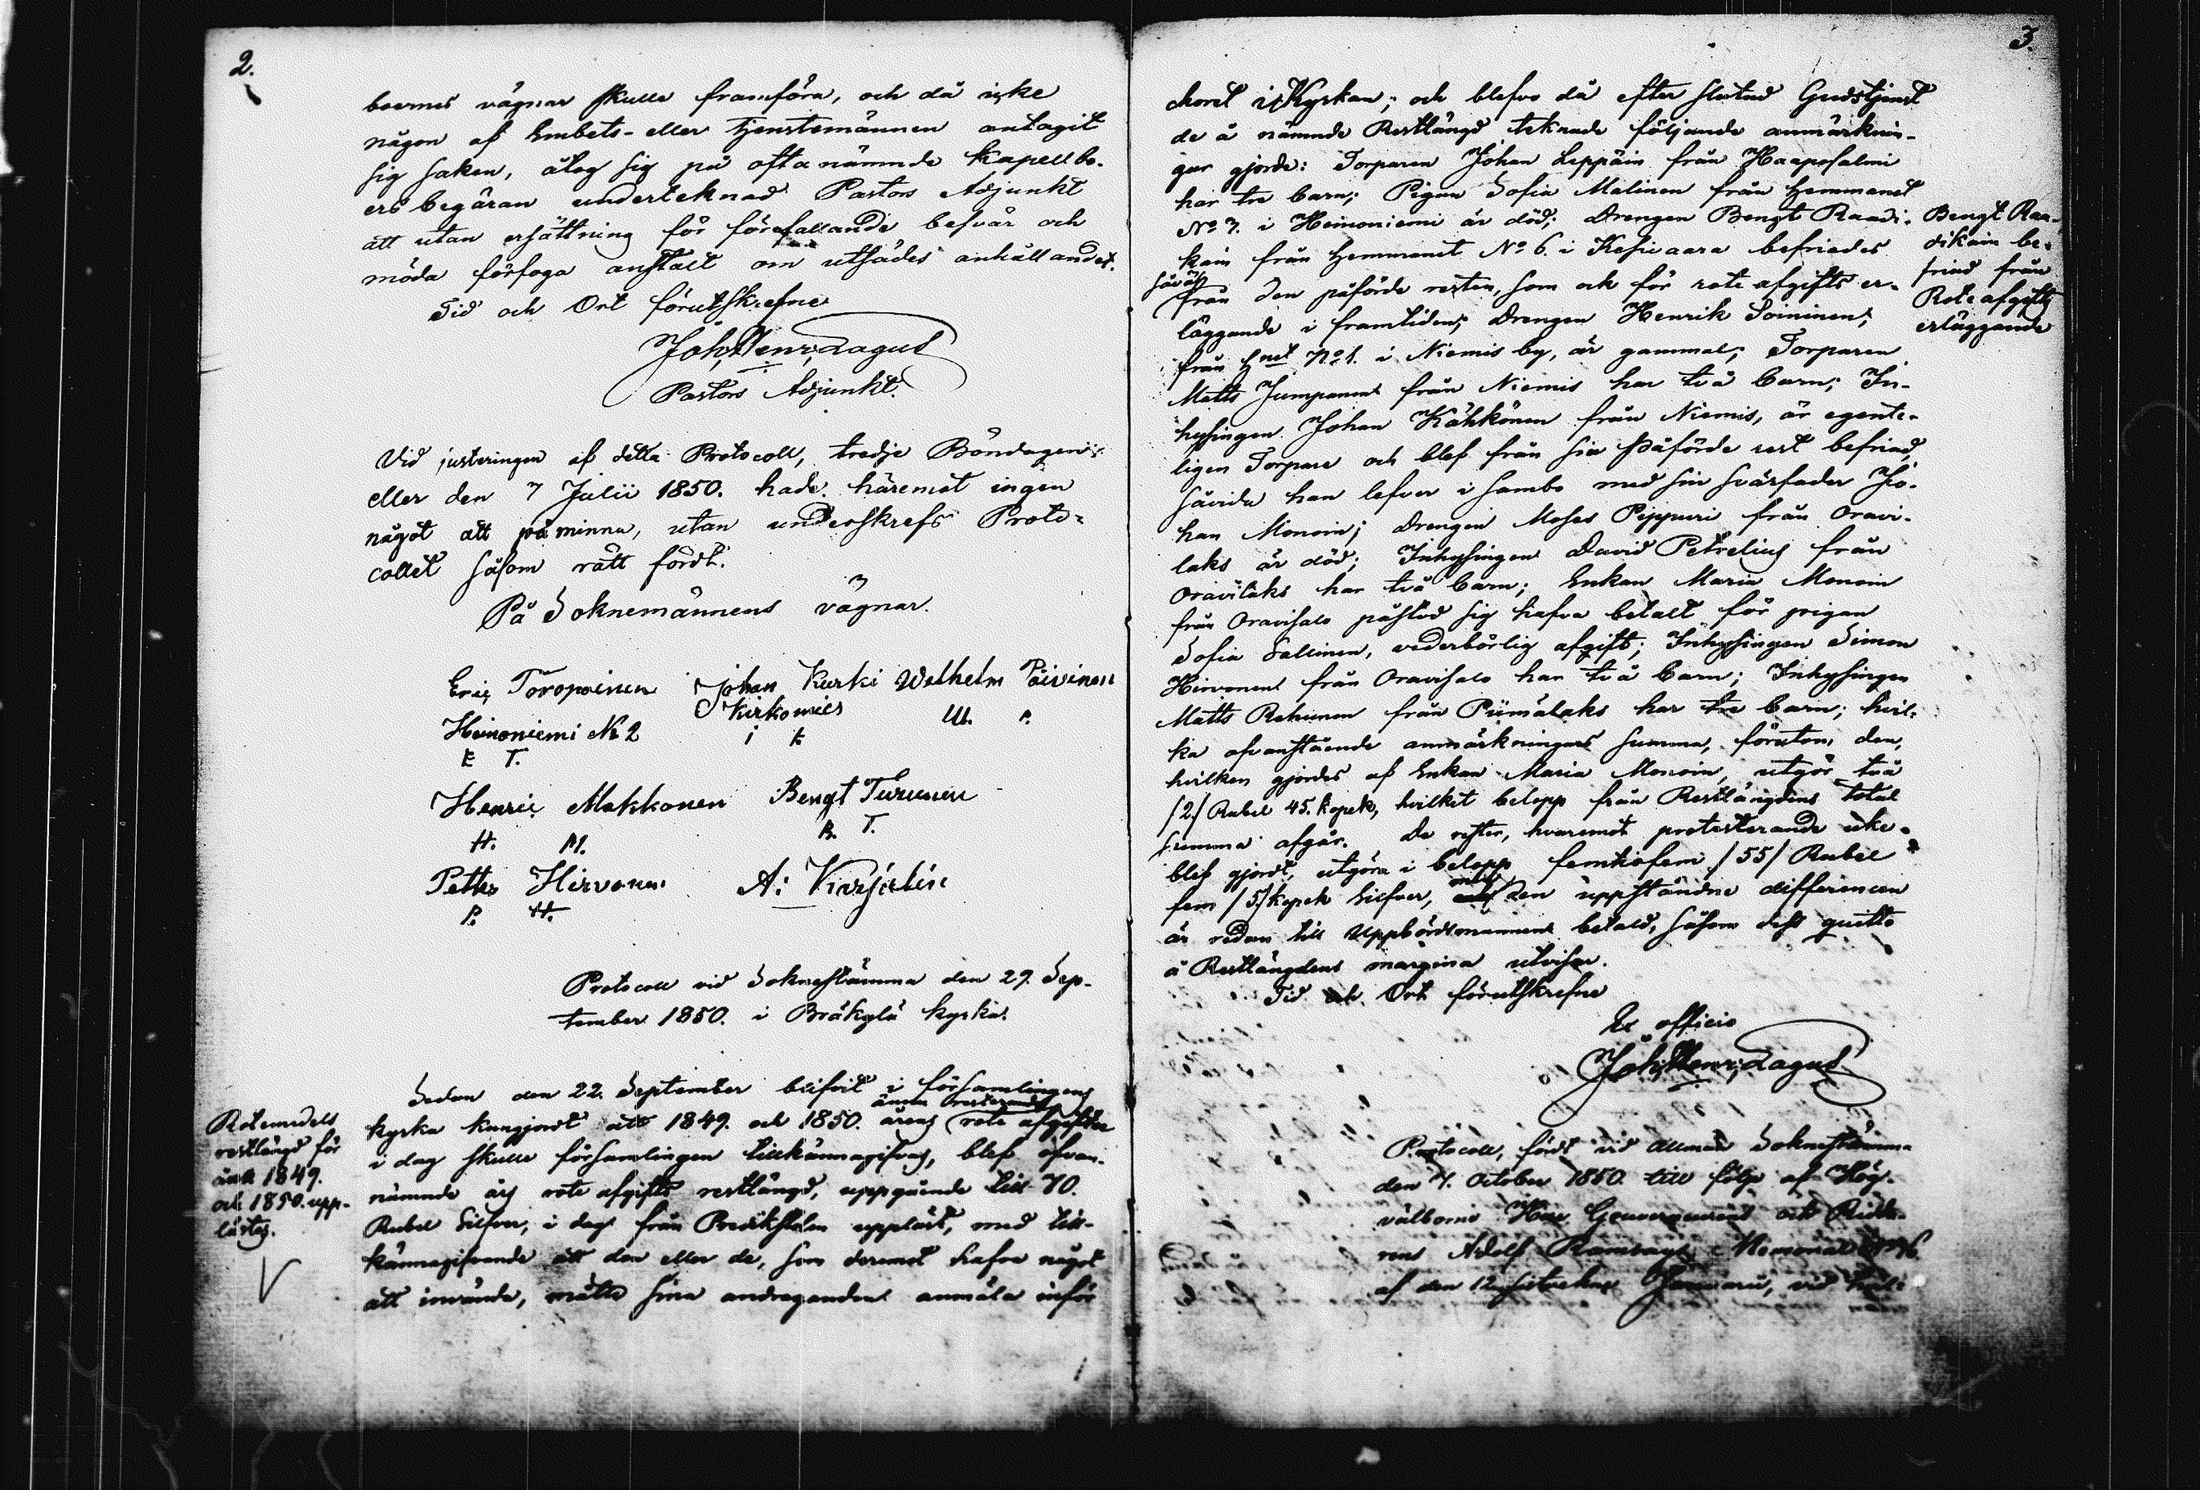 2.
boernes vägnar skulle framföra, och då icke
någon af Embets- eller tjenstemännen antagit
sig saken, åtog sig på oftanämnde Kapellbo-
ers begäran underteknad Pastors Adjunkt
att utan ersättning för förefallande besvär och
möda förfoga anstalt om utsädes anhållandet.
Tid och Ort förutskrefne
Joh. Henr. Lagus
Pastors Adjunkt.
Vid justeringen af detta Protocoll, tredje Böndagen
eller den 7 Julii 1850. hade häremot ingen
något att påminna, utan underskrefs Proto-
collet såsom rätt fördt.
På Soknemännens vägnar.
Eric Toropainen Johan Kurki Welhelm Päivinen
Heinoniemi No 2 Kirkomies W. P.
E T. i k
Henric Makkonen Bengt Turunen
H. M. B. T.
Petter Hirvonen A: Karjalin
P. H.
Protocoll vid Soknestämma den 29. Sep-
tember 1850. i Bräkylä kyrka.
Sedan den 22. September blifvit i församlingens
ännu resterande
kyrka kungjordt att 1849. och 1850. årens rote afgifter
i dag skulle församlingen tillkännagifvas, blef ofvan-
nämnde års rote afgifts restlängd, uppgående till 70.
Rubel Silfver, i dag från Predikstolen uppläst, med till-
kännagifvande att den eller de, som deremot hafva något
att invända, måtte sina andraganden anmäla inför
Rotemedels
restlängd för
åren 1849.
och 1850. upp-
lästes.
3.
choret i Kyrkan; och blefvo då efter slutad Gudstjenst
de å nämnde Restlängd teknade följande anmärknin-
gar gjorde: Torparen Johan Leppäin från Haaposalmi
har tre barn; Pigan Sofia Malinen från Hemmanet
No 3. i Heinoniemi är död; Drengen Bengt Raadi-
kain från Hemmanet No 6. i Kesivaara befriades
såväl
från den påförde resten, som ock för rote afgifts er-
läggande i framtiden; Drengen Henrik Soininen,
från Hmet No 1. i Niemis by, är gammal; Torparen
Matts Jumpanen från Niemis har två barn; In-
hysingen Johan Kähkönen från Niemis, är egente-
ligen Torpare och blef från sin påförde rest befriad,
såvida han lefver i sambo med sin svärfader Jo-
han Monoin; Drengen Moses Pippuri från Oravi-
laks är död; Inhysingen David Petrelius från
Oravilaks har två barn; Enkan Maria Monoin
från Oravisalo påstod sig hafva betalt för pigan
Sofia Sallinen, vederbörlig afgift; Inhysingen Simon
Hirvonen från Oravisalo har två barn; Inhysingen
Matts Rahunen från Piimälaks har tre barn; hvil-
ka ofvanstående anmärkningars summa, förutom den,
hvilken gjordes af Enkan Maria Monoin, utgör två
/2/ Rubel 45. kopek, hvilket belopp från Restlängdens total
summa afgår. De rester, hvaremot protesterande icke
blef gjordt, utgöra i belopp femtiofem /55/ Rubel
fem /5/ kopek Silfver, men den uppståndne differencen
är redan till Uppbördsmannen betald, såsom dess quitto
å Restlängdens margina utvisar.
Tid och Ort förutskrefne
Ex officio
Joh. Henr. Lagus
Bengt Raa-
dikain be-
friad från
Rote afgifts
erläggande
Protocoll, fördt vid allmän Soknestämma
den 4. October 1850. till följe af Hög-
välborne Herr Gouverneurens och Ridda-
rens Adolf Ramsays Memorial No 6
af den 12. sistvekne Januarii, vid